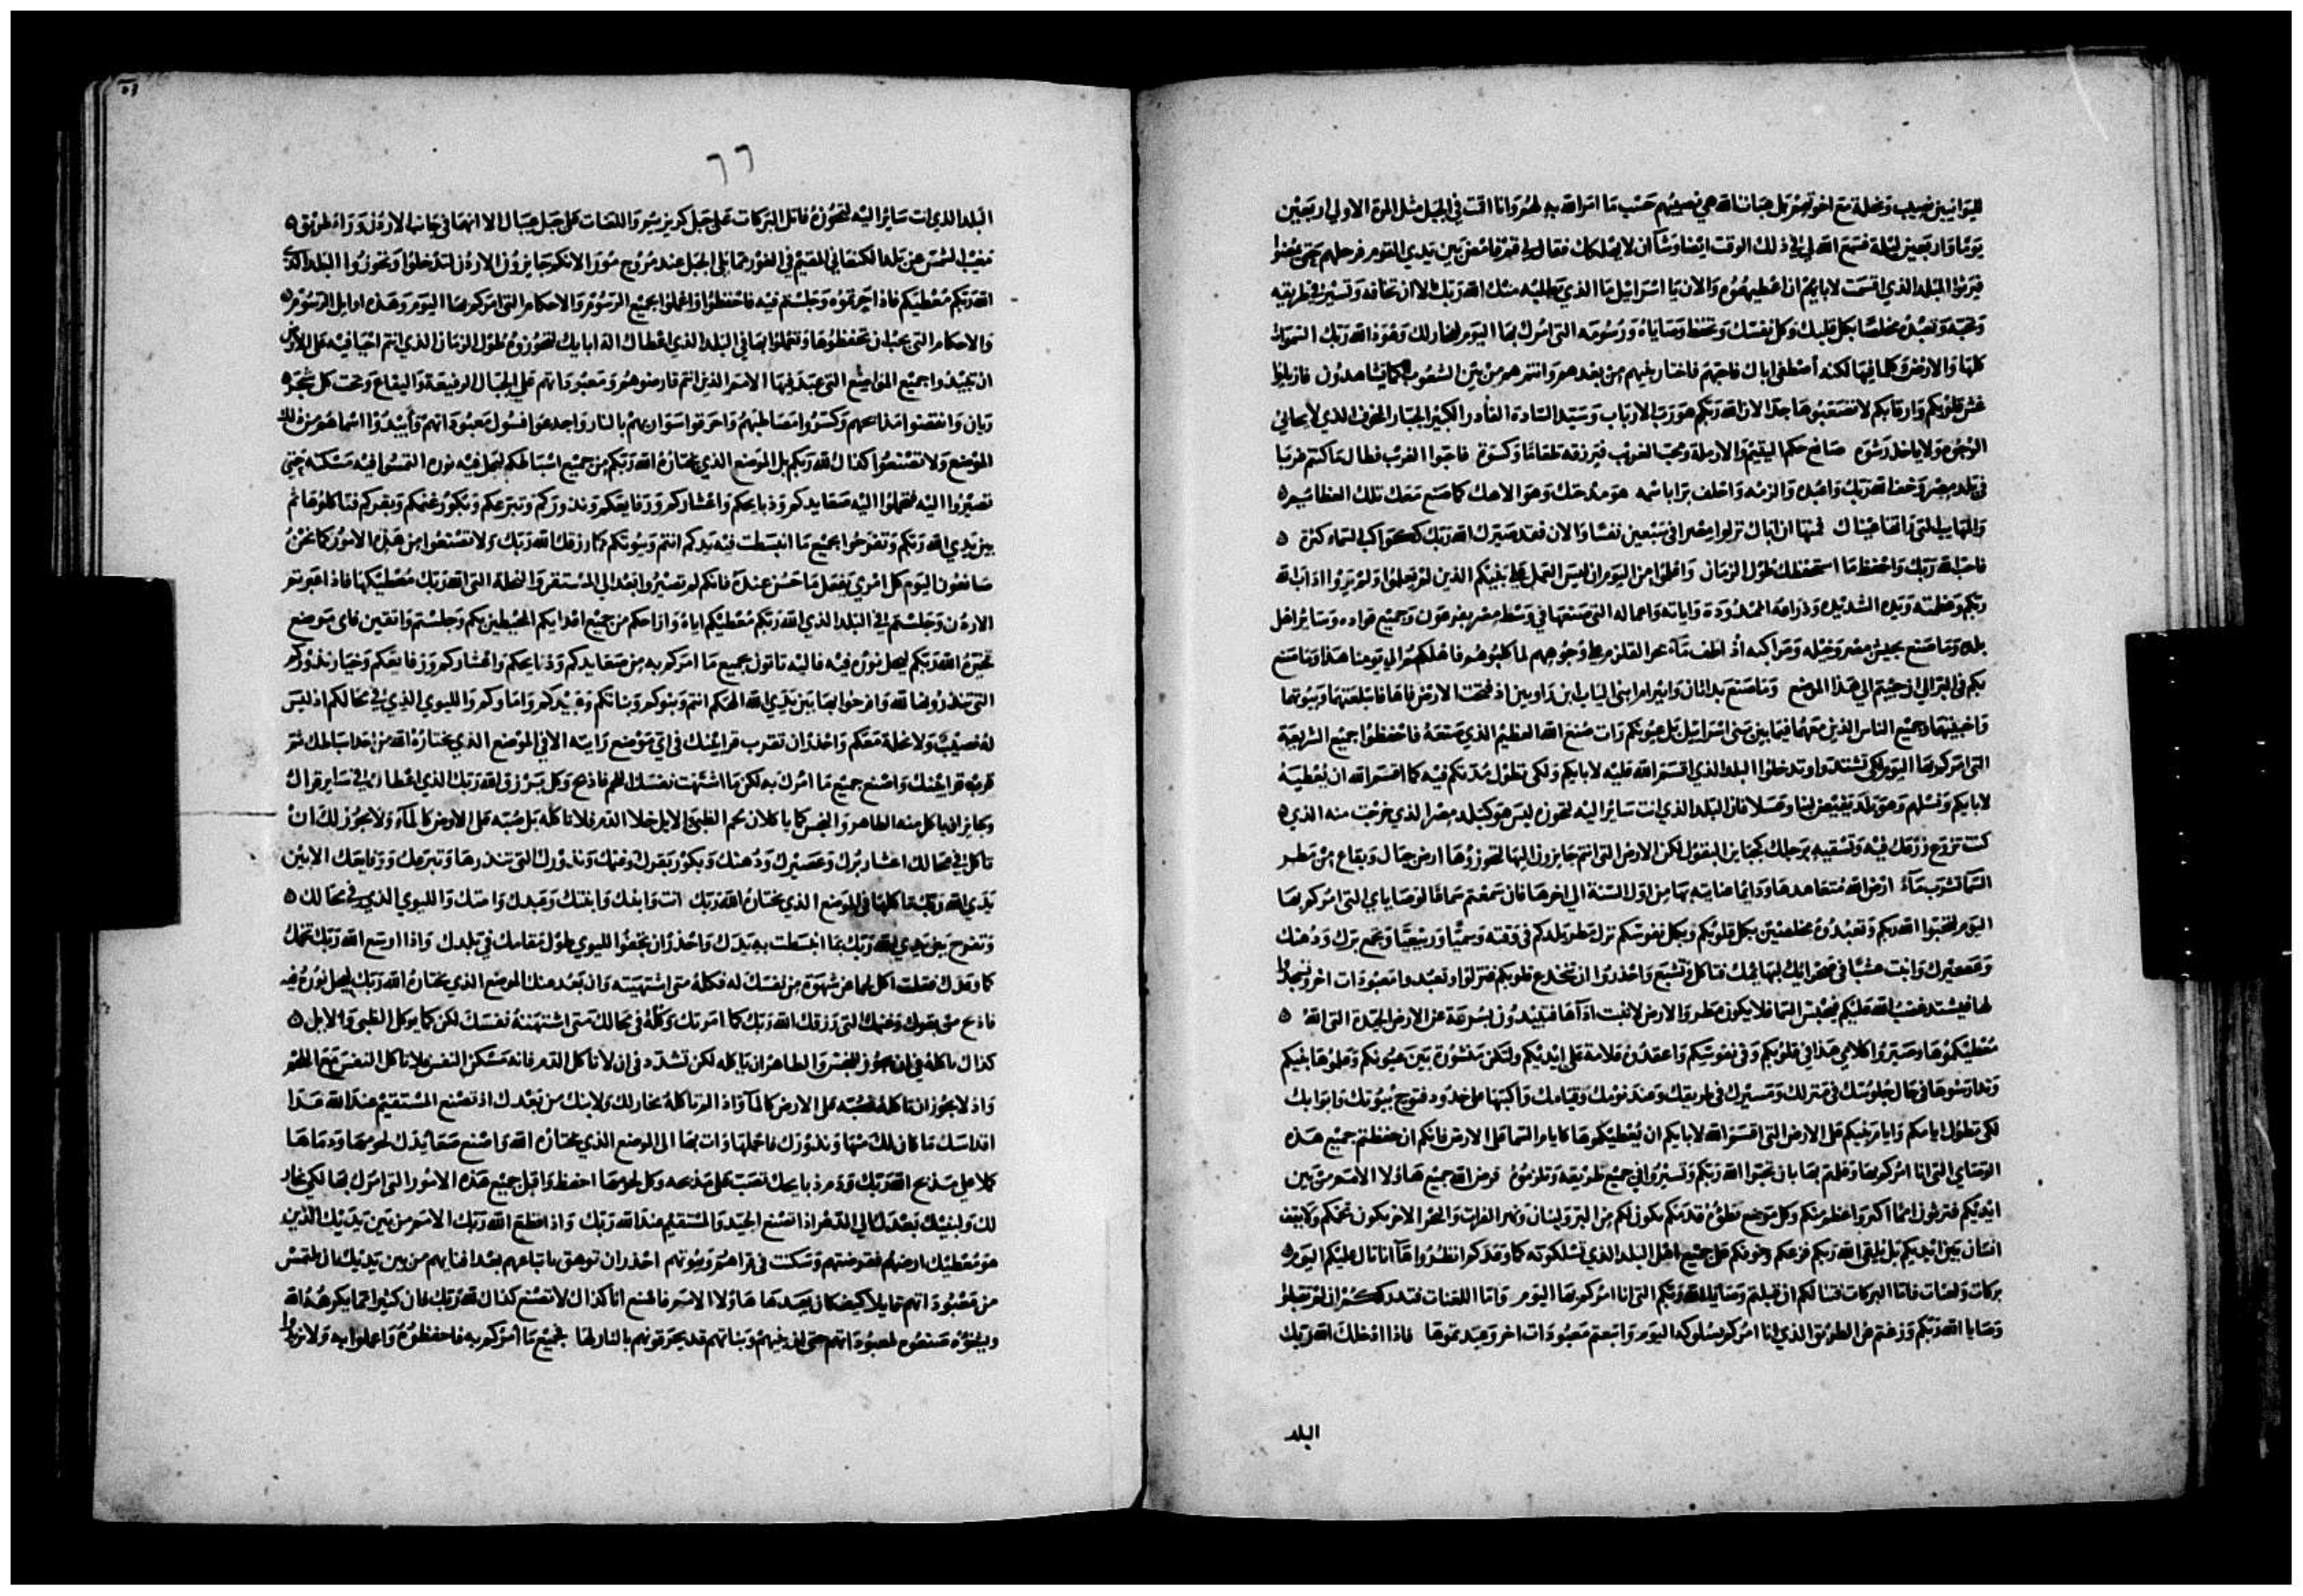 للبوانيين نصيب ونحلة مع اخوتهم بل هبات الله هي نصيبهم حسب ما امر الله به لهم وانا اقمت في الجبل مثل المرة الاولي اربعين
يوما واربعين ليلة فسمع الله لي في ذلك الوقت ايضا وشا ان لا يهلكك فقال لي قم فامض بين يدي القوم فرحلهم حتى يمضوا
فيرثوا البلد الذي اقسمت لابايهم ان اعطيهموه والان يا اسرائيل ما الذي يطلبه منك الله ربك الا ان تخافه وتسير في طريقه
وتحبه وتعبده مخلصا بكل قلبك وكل نفسك وتحفظ وصاياه ورسومه التي امرك بها اليوم لخيار لك وهوذا لله ربك السموات
كلها والارض وكلما فيها لكنه اصطفى اباك فاحبهم فاختار بنيهم من بعدهم وانتم هم من بين الشعوب كما تشاهدون فازيلوا
غش قلوبكم وارقابكم لا تصعبوها جدا لان الله ربكم هو رب الارباب وسيد السادة القادر الكبير الجبار المخوف الذي لا يحابي
الوجوه ولا ياخذ رشوه صانع حكم اليتيم والارملة ومحب الغريب فيرزقه طعاما وكسوة فاحبوا الغريب فطال ما كنتم غربا
في بلد مصر وخف الله ربك واعبده والزمه واحلف برا باسمه هو مدحك وهو الاهك كما صنع معك تلك العظايم
والمهايب التي راتها عيناك فمنها ان اباك نزلوا مصر في سبعين نفسا والان فقد صيرك الله ربك ككواكب السماء كثرة
فاحب الله ربك واحفظ ما استحفظك طول الزمان واعلموا من اليوم ان ليس العمل على بنيكم الذين لم يعلموا ولم يروا اداب الله
ربكم وعظمته ويده الشديدة وذراعه الممدودة واياته واعماله التي صنعها في وسط مصر بفرعون وجميع قواده وساير اهل
بلده وما صنع بجيش مصر وخيله ومراكبه اذ اطف ماء بحر القلزم على وجوههم لما كلبوهم فاهلكهم الى يومنا هذا وما صنع
بكم في البر الي ان جيتم الي هذا الموضع وما صنع بداثان وابيرام ابني الياب ابن راوبين اذ فتحت الارض فاها فابتلعتهما وبيوتهما
واخبيتهما وجميع الناس الذين معهما فيما بين بني اسرايل بل عيونكم رات صنع الله العظيم الذي صنعه فاحفظوا جميع الشريعة
التي امركم بها اليوم لكي تشتدوا وتدخلوا البلد الذي اقسم الله عليه لابايكم ولكي تطول مدتكم فيه كما اقسم الله ان يعطيه
لابايكم ونسلهم وهو بلد يفيض لبنا وعسلا فان البلد الذي انت ساير اليه لتحوزه ليس هو كبلد مصر الذي خرجت منه الذي
كنت تزرع زرعك فيه وتسقيه برجلك كجنان البقول لكن الارض التي انتم جايزون اليها لتحوزوها ارض جبال وبقاع من مطر
السما تشرب ماء ارض الله متعاهدها ودايما عنايته بها من اول السنة الي اخرها فان سمعتم سماعا لوصاياي التي امركم بها
اليوم لتحبوا الله ربكم وتعبدوه مخلصين بكل قلوبكم وبكل نفوسكم نزل مطر بلدكم في وقته وسميا وربيعيا وتجمع برك ودهنك
وعصيرك وانبت عشبا في صحرائك لبهايمك فتاكل وتشبع واحذروا ان تنخدع قلوبكم فتزلوا وتعبدوا معبودات اخر وتسجدوا
لها فيشتد غضب الله عليكم فيحبس السما فلا يكون مطر والارض لا تنبت اداها فتبيدون بسرعة عن الارض الجيدة التي الله
معطيكموها وصيروا كلامي هذا في قلوبكم وفي نفوسكم واعقدوه علامة على ايديكم ولتكن منشورة بين عيونكم وعلموها بنيكم
وتدارسوها في حال جلوسك في منزلك ومسيرك في طريقك وعند نومك وقيامك واكتبها على خدود فتوح بيوتك وابوابك
لكي تطول ايامكم وايام بنيكم على الارض التي اقسم الله لابايكم ان يعطيكموها كايام السما على الارض فانكم ان حفظتم جميع هذه
الوصايا التي انا امركم بها وعملتم بها بان تحبوا الله ربكم وتسيروا في جميع طريقه وتلزموه قرض الله جميع هاولا الامم من بين
ايديكم فترثون امما اكبر واعظم منكم وكل موضع تطؤه قدمكم يكون لكم من البر ولبنان ونهر الفرات والبحر الاخر يكون تخمكم ولا يقف
انسان بين ايديكم بل يلقي الله ربكم فزعكم وخوفكم على جميع اهل البلد الذي تسلكونه كما وعدكم انظروا ها انا تال عليكم اليوم
بركات ولعنات فاما البركات فتنالكم ان قبلتم وصايا الله ربكم التي انا امركم بها اليوم واما اللعنات فتدرككم ان لم تقبلوا
وصايا الله ربكم وزغتم عن الطريق الذي انا امركم بسلوكه اليوم واتبعتم معبودات اخر وعبدتموها فاذا ادخلك الله ربك
البلد
٥٦
٦٦
البلد الذي انت سايرا اليه لتحوزه فاتل البركات على جبل كريزيم واللعنات على جبل عيبال الا انهما في جانب الاردن وراء طريق
مغيب الشمس من بلد الكنعاني المقيم في الغور مما يلي الجبل عند مروج مورا لانكم جايزون الاردن لتدخلوا وتحوزوا البلد الذي
الله ربكم معطيكم فاذا حزتموه وجلستم فيه فاحفظوا واعملوا بجميع الرسوم والاحكام التي امركم بها اليوم وهذه اوايل الرسوم
والاحكام التي يجب ان تحفظوها وتعملوا بها في البلد الذي اعطاك اله ابايك لتحوزوه طول الزمان الذي انتم احيا فيه على الارض
ان تبيدوا جميع المواضع التي عبد فيها الامم الذين انتم قارضوهم ومعبوداتهم على الجبال الرفيعة واليفاع وتحت كل شجرة
ريان وانقضوا مذابحهم وكسروا مصاطبهم واحرقوا سواريهم بالنار واجدعوا فسول معبوداتهم وابيدوا اسماهم من ذلك
الموضع ولا تصنعوا كذاك لله ربكم بل الموضع الذي يختاره الله ربكم من جميع اسباطكم ليحل فيه نوره التمسوا فيه مسكنه حتى
تصيروا اليه فتحملوا اليه صعايدكم وذبايحكم واعشاركم ورفايعكم ونذوركم وتبرعكم وبكور غنمكم وبقركم فتاكلوها ثم
بين يدي الله ربكم وتفرحوا بجميع ما انبسطت فيه يدكم انتم وبيوتكم مما رزقك الله ربك ولا تصنعوا من هذه الامور كما نحن
صانعون اليوم كل امري يفعل ما حسن عنده فانكم لم تصيروا بعد الى المستقر والنحلة التي الله ربك معطيكها فاذا عبرتم
الاردن وجلستم في البلد الذي الله ربكم معطيكم اياه واراحكم من جميع اعدايكم المحيطين بكم وجلستم واثقين فاي موضع
تخيره الله ربكم ليحل نوره فيه فاليه تاتون بجميع ما امركم به من صعايدكم وذبايحكم واعشاركم ورفايعكم وخيار نذوركم
التي تنذرونها لله وافرحوا بها بين يدي الله الهكم انتم وبنوكم وبناتكم وعبيدكم واماوكم والليوي الذي في محالكم اذ ليس
له نصيب ولا نحلة معكم واحذر ان تقرب قرابينك في اي موضع رايته الا في الموضع الذي يختاره الله من احد اسباطك ثم
قرب قرابينك واصنع جميع ما امرك به لكن ما اشتهت نفسك اللحم فاذبح وكل برزق الله ربك الذي اعطاك في ساير قراك
وجايز ان ياكل منه الطاهر والنجس كما ياكلان لحم الظبي والايل خلا الدم فلا تاكله بل صبه على الارض كالماء ولا يجوز لك ان
تاكل في محالك اعشار برك وعصيرك ودهنك وبكور بقرك وغنمك ونذورك التي تنذرها وتبرعك ورفايعك الا بين
يدي الله ربك فاكلها في الموضع الذي يختاره الله ربك انت وابنك وابنتك وعبدك وامتك والليوي الذي في محالك
وتفرح بين يدي الله ربك بما انبسطت به يدك واحذر ان تجفوا الليوي طول مقامك في بلدك واذا اوسع الله ربك تخمك
كما وعدك فقلت اكل لحما عن شهوة من نفسك له فكله متى اشتهيته وان بعد منك الموضع الذي يختاره الله ربك ليحل نوره فيه
فاذبح من بقرك وغنمك التي رزقك الله ربك كما امرتك وكله في محالك متى اشتهته نفسك لكن كما يوكل الظبي والايل
كذاك تاكله في ان يجوز للنجس والطاهر ان ياكله لكن تشدد في ان لا تاكل الدم فانه مسكن النفس ولا تاكل النفس مع اللحم
واذ لا يجوز ان تاكله فصبه على الارض كالماء واذا لم تاكله بخار لك ولابنك من بعدك اذ تصنع المستقيم عند الله عدا
اقداسك ما كان لك منها ونذورك فاحملها وات بها الى الموضع الذي يختاره الله واصنع صعايدك لحومها ودماها
كملا على مذبح الله ربك ودم ذبايحك تصب على مذبحه وكل لحومها احفظ واقبل جميع هذه الامور التي امرك بها لكي يخار
لك ولبنيك بعدك الي الدهر اذ تصنع الجيد والمستقيم عند الله ربك واذا قطع الله ربك الامم من بين يديك الذين
هو معطيك ارضهم فقرضتهم وسكنت في قراهم وبيوتهم احذر ان توهق باتباعهم بعد افنايهم من بين يديك او ان تلتمس
من معبوداتهم قايلا كيف كان يعبدها هاولا الامم فاصنع انا كذاك لا تصنع كذاك لله ربك فان كثيرا مما يكرهه الله
ويشنوه صنعوه لمعبوداتهم حتى ان بنيهم وبناتهم قد يحرقونهم بالنار لها بجميع ما امركم به فاحفظوه واعملوا به ولا تزيدوا